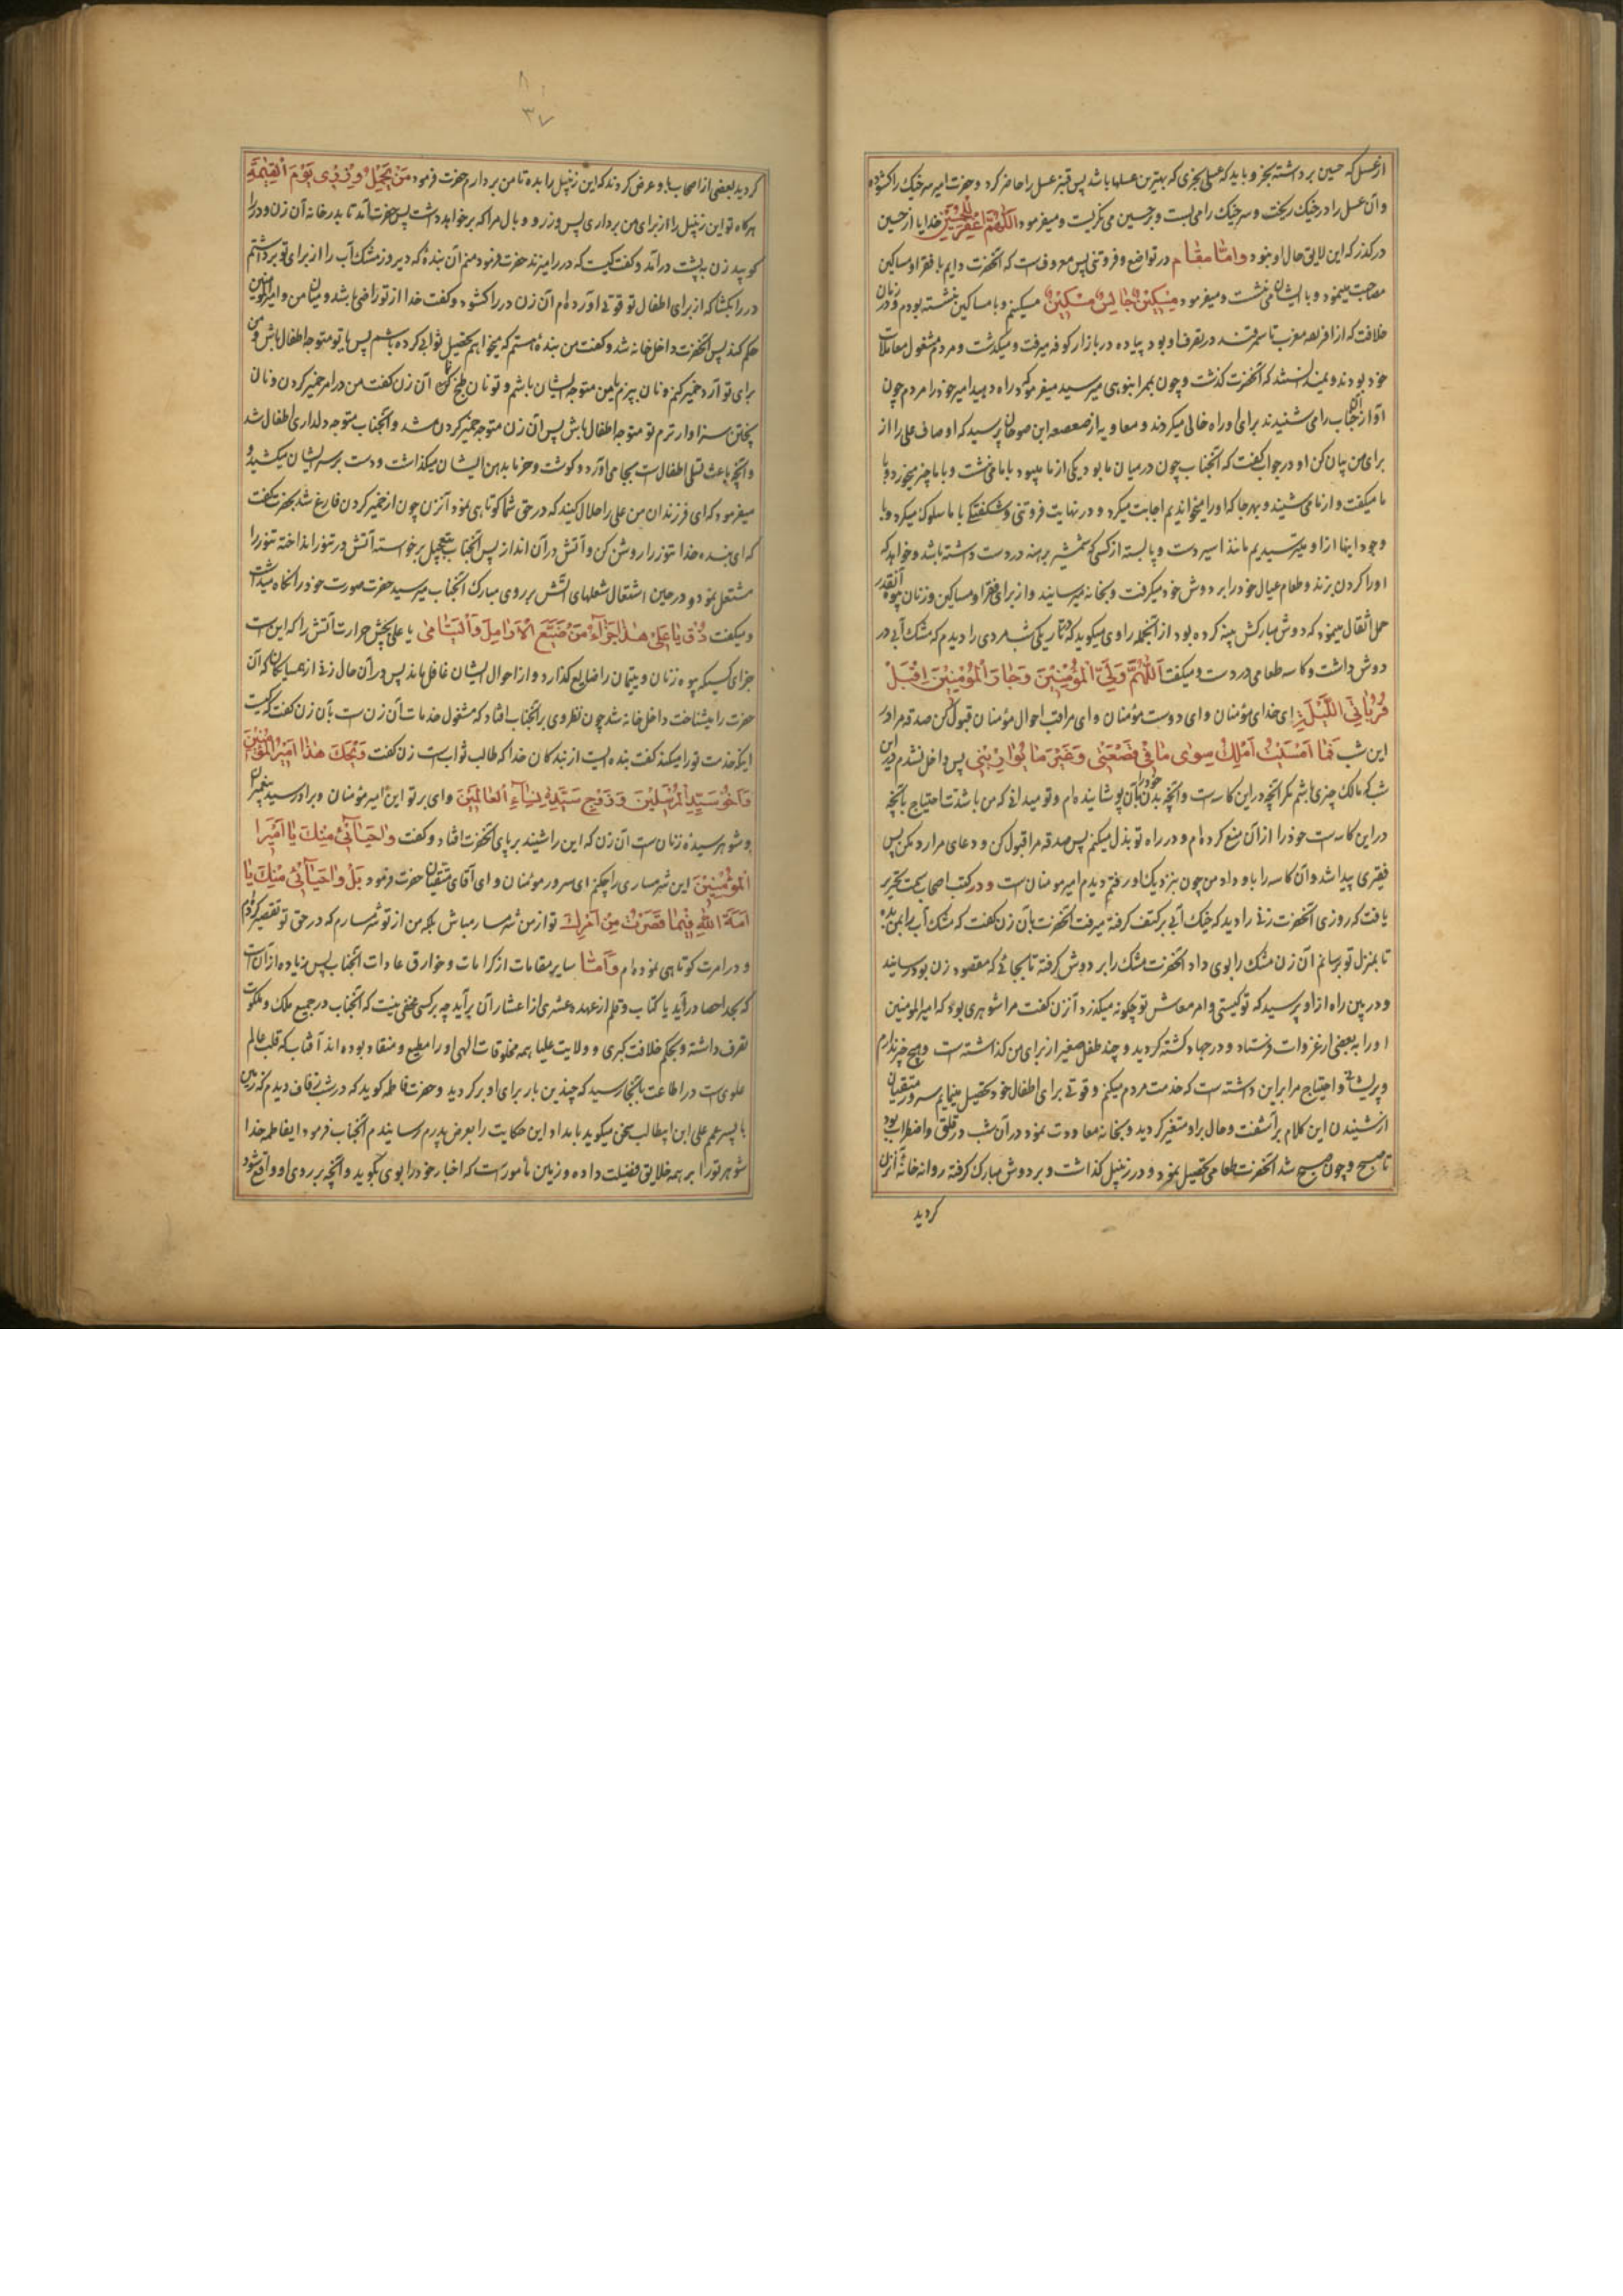 از عسل که حسین برداشته بخر و باید که عسلی بخری که بهترین عسلها باشد پس قنبر عسل را حاضر کرد و حضرت امیر سر خیک را کشوده
و آن عسل را در خیک ریخت و سر خیک را می بست و بر حسین می نکریست و میفرمود اللهم اغفر للحسین خدایا از حسین
درکذر که این لایق حال او نبود واما مقام در تواضع و فروتنی پس معروفست که آنحضرت دایم با فقرا و مساکین
مصاحبت مینمود و با ایشان می نشست و میفرمود مسکین جالس مسکین مسکینم و با مساکین نشسته بودم و در زمان
خلافت که از افریقه مغرب تا سمرقند در تصرف او بود پیاده در بازار کوفه میرفت و میکذشت و مردم مشغول معاملات
خود بودند و نمیدانستند که آنحضرت کذشت و چون بممر انبوهی میرسید میفرمود که راه دهید امیر خود را مردم چون
آواز آن جناب را می شنیدند برای او راه خالی میکردند و معاویه از صعصعه ابن صوحان پرسید که اوصاف علی را از
برای من بیان کن او در جواب کفت که آنجناب چون در میان ما بود یکی از ما میبود با ما می نشست و با ما چیز میخورد با
ما میکفت و از ما می شنید و بهر جا که او را میخواندیم اجابت میکرد و در نهایت فروتنی و شکفتکی با ما سلوک میکرد و با
وجود اینها از او میترسیدیم مانند اسیر دست و پا بسته از کسی که شمشیر برهنه در دست داشته باشد و خواهد که
او را کردن بزند و طعام عیال خود را بر دوش خود میکرفت و بخانه میرسانید و از برای فقرا و مساکین و زنان بیوه آنقدر
حمل اثقال مینمود که دوش مبارکش پینه کرده بود از آنجمله راوی میکوید که در تاریکی شب مردی را دیدم که مشک آبی در
دوش داشت و کاسه طعامی در دست و میکفت اللهم ولی المؤمنین و جار المؤمنین اقبل
قربانی اللیلة ای خدای مؤمنان و ای دوست مؤمنان و ای مراقب احوال مؤمنان قبول کن صدقه مرا در
این شب فما امسیت املک سوی ما فی قصعتی و غیر ما یوارینی پس داخل نشدم در این
شب که مالک چیزی باشم مکر آنچه در این کاسه است و آنچه بدن خود را بآن پوشانیده ام و تو میدانی که من با شدت احتیاج بآنچه
در این کاسه است خود را از آن منع کرده ام و در راه تو بذل میکنم پس صدقه مرا قبول کن و دعای مرا رد مکن پس
فقیری پیدا شد و آن کاسه را باو داد من چون بنزدیک او رفتم دیدم امیر مومنان است و در کتب اصحاب سمت تحریر
یافت که روزی آنحضرت زنی را دید که خیک آبی بر کتف کرفته میرفت آنحضرت بآن زن کفت که مشک آب را بمن بده
تا بمنزل تو برسانم آن زن مشک را بوی داد آنحضرت مشک را بر دوش کرفته تا بجائی که مقصود زن بود رسانید
و در بین راه از او پرسید که تو کیستی و امر معاش تو چکونه میکذرد آنزن کفت مرا شوهری بود که امیرالمومنین
او را به بعضی از غزوات فرستاد و در جهاد کشته کردید و چند طفل صغیر از برای من کذاشته است و هیچ چیز ندارم
و پریشانی و احتیاج مرا بر این داشته است که خدمت مردم میکنم و قوتی برای اطفال خود تحصیل مینمایم سرور متقیان
از شنیدن این کلام برآشفت و حال بر او متغیر کردید و بخانه معاودت نمود و در آن شب در قلق و اضطراب بود
تا صبح و چون صبح شد آنحضرت طعامی تحصیل نمود و در زنبیل کذاشت و بر دوش مبارک کرفته روانه خانه آنزن
کردید
۳۷
کردید بعضی از اصحاب باو عرض کردند که این زنبیل را بده تا من بردارم حضرت فرمود من یحمل وزری یوم القیمة
هرکاه تو این زنبیل را از برای من برداری پس وزر و وبال مرا که برخواهد داشت پس حضرت آمد تا بدر خانه آن زن و در را
کوبید زن به پشت در آمد و کفت کیست که در را میزند حضرت فرمود منم آن بنده که دیروز مشک آب را از برای تو برداشتم
در را بکشا که از برای اطفال تو قوتی آورده ام آن زن در را کشود و کفت خدا از تو راضی باشد و میان من و امیر المؤمنین
حکم کند پس آنحضرت داخل خانه شد و کفت من بنده هستم که میخواهم تحصیل ثوابی کرده باشم پس یا تو متوجه اطفال باش و من
برای تو آرد خمیر کنم و نان بپزم یا من متوجه ایشان باشم و تو نان طبخ کن آن زن کفت من در امر خمیر کردن و نان
پختن سزاوارترم تو متوجه اطفال باش پس آن زن متوجه خمیر کردن شد و آنجناب متوجه دلداری اطفال شد
و آنچه باعث تسلی اطفال است بجا می آورد و کوشت و خرما بدهن ایشان میکذاشت و دست بر سر ایشان میکشید و
میفرمود که ای فرزندان من علی را حلال کنید که در حق شما کوتاهی نمود آنزن چون از خمیر کردن فارغ شد بحضرت کفت
که ای بنده خدا تنور را روشن کن و آتش در آن انداز پس آنجناب بتعجیل برخواسته آتش در تنور انداخته تنور را
مشتعل نمود و در حین اشتعال شعلهای آتش بر روی مبارک آنجناب میرسید حضرت صورت خود را نکاه میداشت
و میکفت ذق یا علی هذا جزاء من ضیع الارامل والیتامی یا علی بچش حرارت آتش را که این است
جزای کسیکه بیوه زنان و یتیمان را ضایع کذارد و از احوال ایشان غافل ماند پس در آن حال زنی از همسایکان که آن
حضرت را میشناخت داخل خانه شد چون نظر وی بر آنجناب افتاد که مشغول خدمات آن زن است بآن زن کفت که کیست
اینکه خدمت تو را میکند کفت بنده ایست از بندکان خدا که طالب ثواب است زن کفت ویحک هذا امیر المؤمنین
واخو سید المرسلین و زوج سیدة نساء العالمین وای بر تو این امیر مؤمنان و برادر سید پیغمبران
و شوهر سیده زنان است آن زن که این را شنید بر پای آنحضرت افتاد و کفت واحیائی منک یا امیر
المؤمنین این شرمساری را چکنم ای سرور مومنان و ای آقای متقیان حضرت فرمود بل واحیائی منک یا
امة الله فیما قصرت من امرک تو از من شرمسار مباش بلکه من از تو شرمسارم که در حق تو تقصیر کردم
و در امرت کوتاهی نموده ام واما سایر مقامات از کرامات و خوارق عادات آنجناب پس زیاده از آن است
که بحد احصا درآید یا کتاب و قلم از عهده عشری از اعشار آن برآید چه بر کسی مخفی نیست که آنجناب در جمیع ملک و ملکوت
تصرف داشته و بحکم خلافت کبری و ولایت علیا همه مخلوقات الهی او را مطیع و منقاد بوده اند آفتاب که قلب عالم
علوی است در اطاعت بآنجا رسید که چندین بار برای او بر کردید و حضرت فاطمه کوید که در شب زفاف دیدم که زمین
با پسر عمم علی ابن ابیطالب سخن میکوید بامداد این حکایت را بعرض پدرم رسانیدم آنجناب فرمود ایفاطمه خدا
شوهر تو را بر همه خلایق فضیلت داده و زمین مأمور است که اخبار خود را بوی بکوید و آنچه بر روی او واقع شود